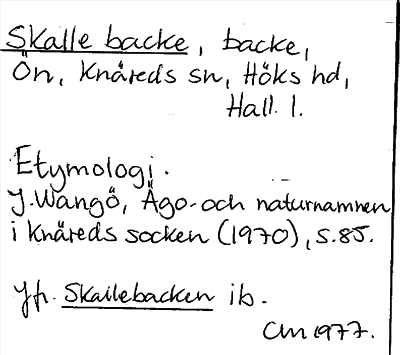 Skalle backe, backe,
Ön, Knäreds sn, Höks hd,
Hall. l.
Etymologi.
J. Wangö, Ägo- och naturnamnen
i Knäreds socken (1970), s. 85.
Jfr. Skallebacken ib.
CM 1977.